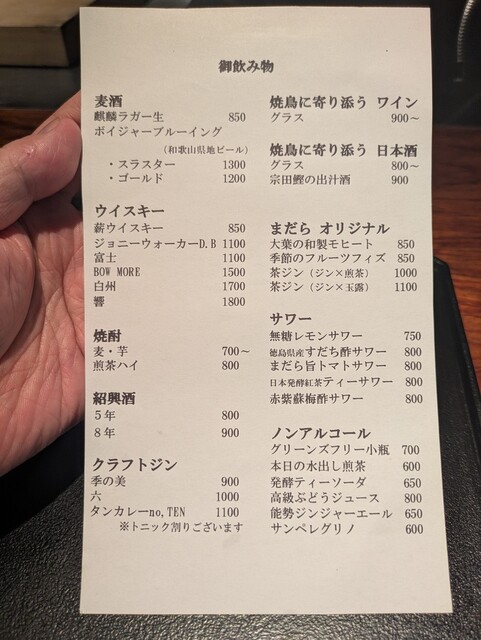 御飲み物
麦酒
麒麟ラガー生 850
ボイジャーブルーイング
(和歌山県地ビール)
・スラスター 1300
・ゴールド 1200
ウイスキー
薪ウイスキー 850
ジョニーウォーカーD.B 1100
富士 1100
BOW MORE 1500
白州 1700
響 1800
焼酎
麦・芋 700~
煎茶ハイ 800
紹興酒
5年 800
8年 900
クラフトジン
季の美 900
六 1000
タンカレーno,TEN 1100
※トニック割りございます
焼鳥に寄り添う ワイン
グラス 900~
焼鳥に寄り添う 日本酒
グラス 800~
宗田鰹の出汁酒 900
まだら オリジナル
大葉の和製モヒート 850
季節のフルーツフィズ 850
茶ジン(ジン×煎茶) 1000
茶ジン(ジン×玉露) 1100
サワー
無糖レモンサワー 750
徳島県産すだち酢サワー 800
まだら旨トマトサワー 800
日本発酵紅茶ティーサワー 800
赤紫蘇梅酢サワー 800
ノンアルコール
グリーンズフリー小瓶 700
本日の水出し煎茶 600
発酵ティーソーダ 650
高級ぶどうジュース 800
能勢ジンジャーエール 650
サンペレグリノ 600